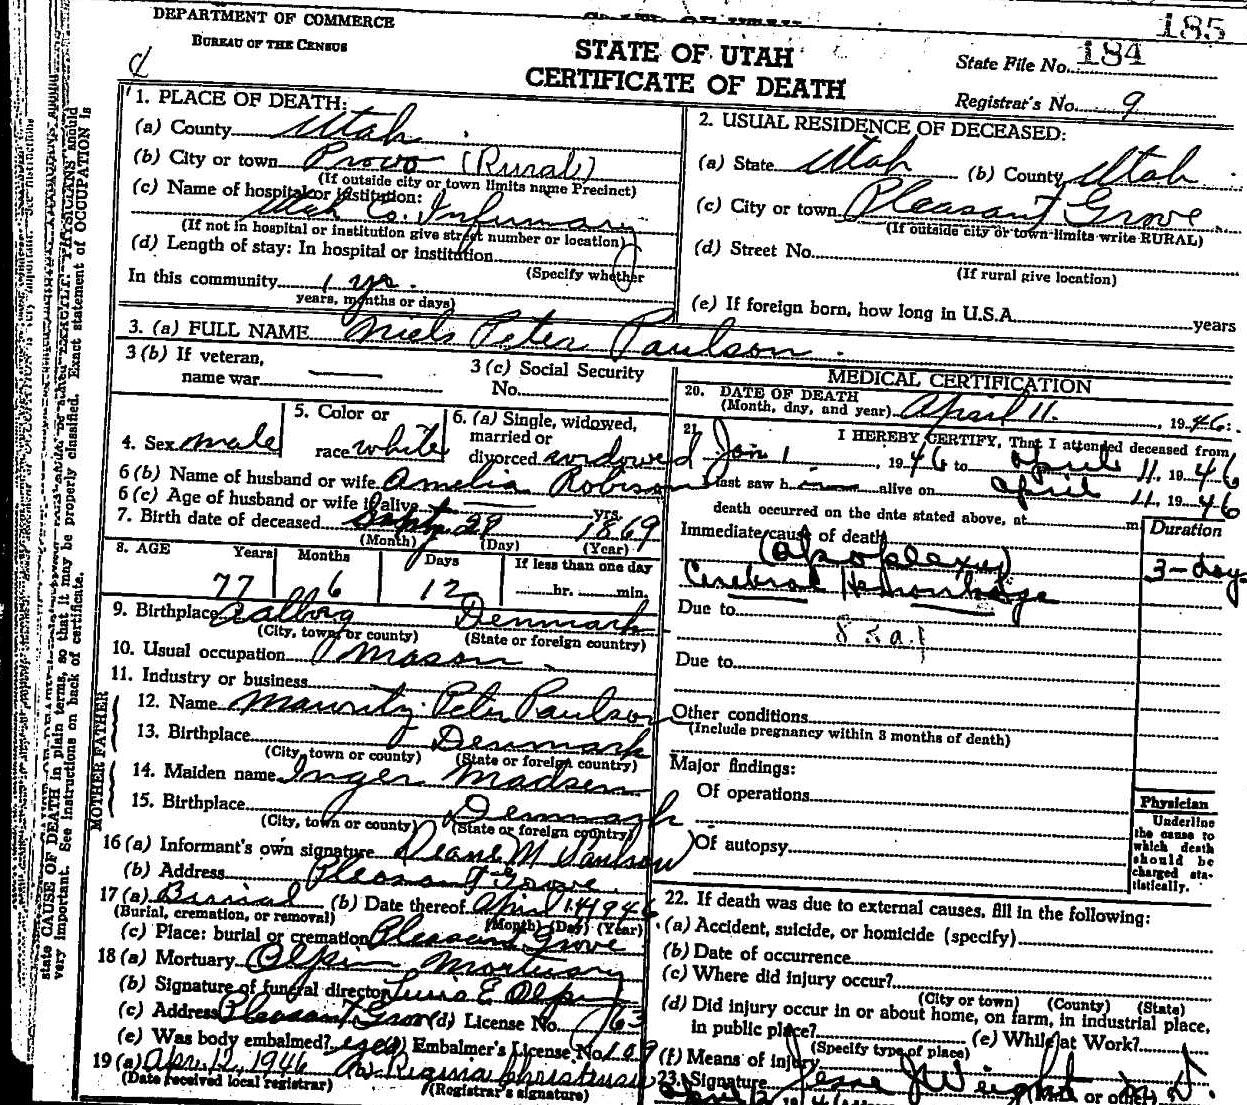 185
DEPARTMENT OF COMMERCE
BUREAU OF THE CENSUS
STATE OF UTAH
CERTIFICATE OF DEATH
State File No. 184
Registrar's No. 9
1. PLACE OF DEATH:
(a) County Utah
(b) City or town Provo (Rural)
(If outside city or town limits name Precinct)
(c) Name of hospital or institution:
Utah Co. Infirmary
(If not in hospital or institution give street number or location)
(d) Length of stay: In hospital or institution
(Specify whether
In this community 1 yr.
years, months or days)
2. USUAL RESIDENCE OF DECEASED:
(a) State Utah (b) County Utah
(c) City or town Pleasant Grove
(If outside city or town limits write RURAL)
(d) Street No.
(If rural give location)
(e) If foreign born, how long in U.S.A. years
3. (a) FULL NAME Niels Peter Paulson
3 (b) If veteran,
name war
3 (c) Social Security
No.
4. Sex male
5. Color or
race white
6. (a) Single, widowed,
married or
divorced widowed
6 (b) Name of husband or wife Amelia Robison
6 (c) Age of husband or wife if alive yrs.
7. Birth date of deceased Sept 29 1869
(Month) (Day) (Year)
8. AGE Years Months Days If less than one day
77 6 12 hr. min.
9. Birthplace Aalborg Denmark
(City, town, or county) (State or foreign country)
10. Usual occupation Mason
11. Industry or business
FATHER
12. Name Mauritz Peter Paulson
13. Birthplace Denmark
(City, town or county) (State or foreign country)
MOTHER
14. Maiden name Inger Madsen
15. Birthplace Denmark
(City, town or county) (State or foreign country)
16 (a) Informant's own signature Deane M Paulson
(b) Address Pleasant Grove
17 (a) Burial (b) Date thereof April 14 1946
(Burial, cremation, or removal) (Month) (Day) (Year)
(c) Place: burial or cremation Pleasant Grove
18 (a) Mortuary Olpin Mortuary
(b) Signature of funeral director
(c) Address Pleasant Grove (d) License No.
(e) Was body embalmed? yes Embalmer's License No. 109
19 (a) Apr. 12, 1946
(Date received local registrar) (Registrar's signature)
MEDICAL CERTIFICATION
20. DATE OF DEATH
(Month, day, and year) April 11. 1946
21. I HEREBY CERTIFY, That I attended deceased from
Jan 1, 1946 to April 11, 1946
last saw him alive on April 11, 1946
death occurred on the date stated above, at m
Duration
Immediate cause of death
(apoplexy)
Cerebral Hemorrhage 3-day
Due to
Due to
Other conditions
(Include pregnancy within 3 months of death)
Major findings:
Of operations
Of autopsy
Physician
Underline
the cause to
which death
should be
charged sta-
tistically.
22. If death was due to external causes, fill in the following:
(a) Accident, suicide, or homicide (specify)
(b) Date of occurrence
(c) Where did injury occur?
(City or town) (County) (State)
(d) Did injury occur in or about home, on farm, in industrial place,
in public place? (e) While at Work?
(Specify type of place)
(f) Means of injury
23. Signature Jesse J Weight M.D.
state CAUSE OF DEATH in plain terms, so that it may be properly classified. Exact statement of OCCUPATION is
very important. See instructions on back of certificate.